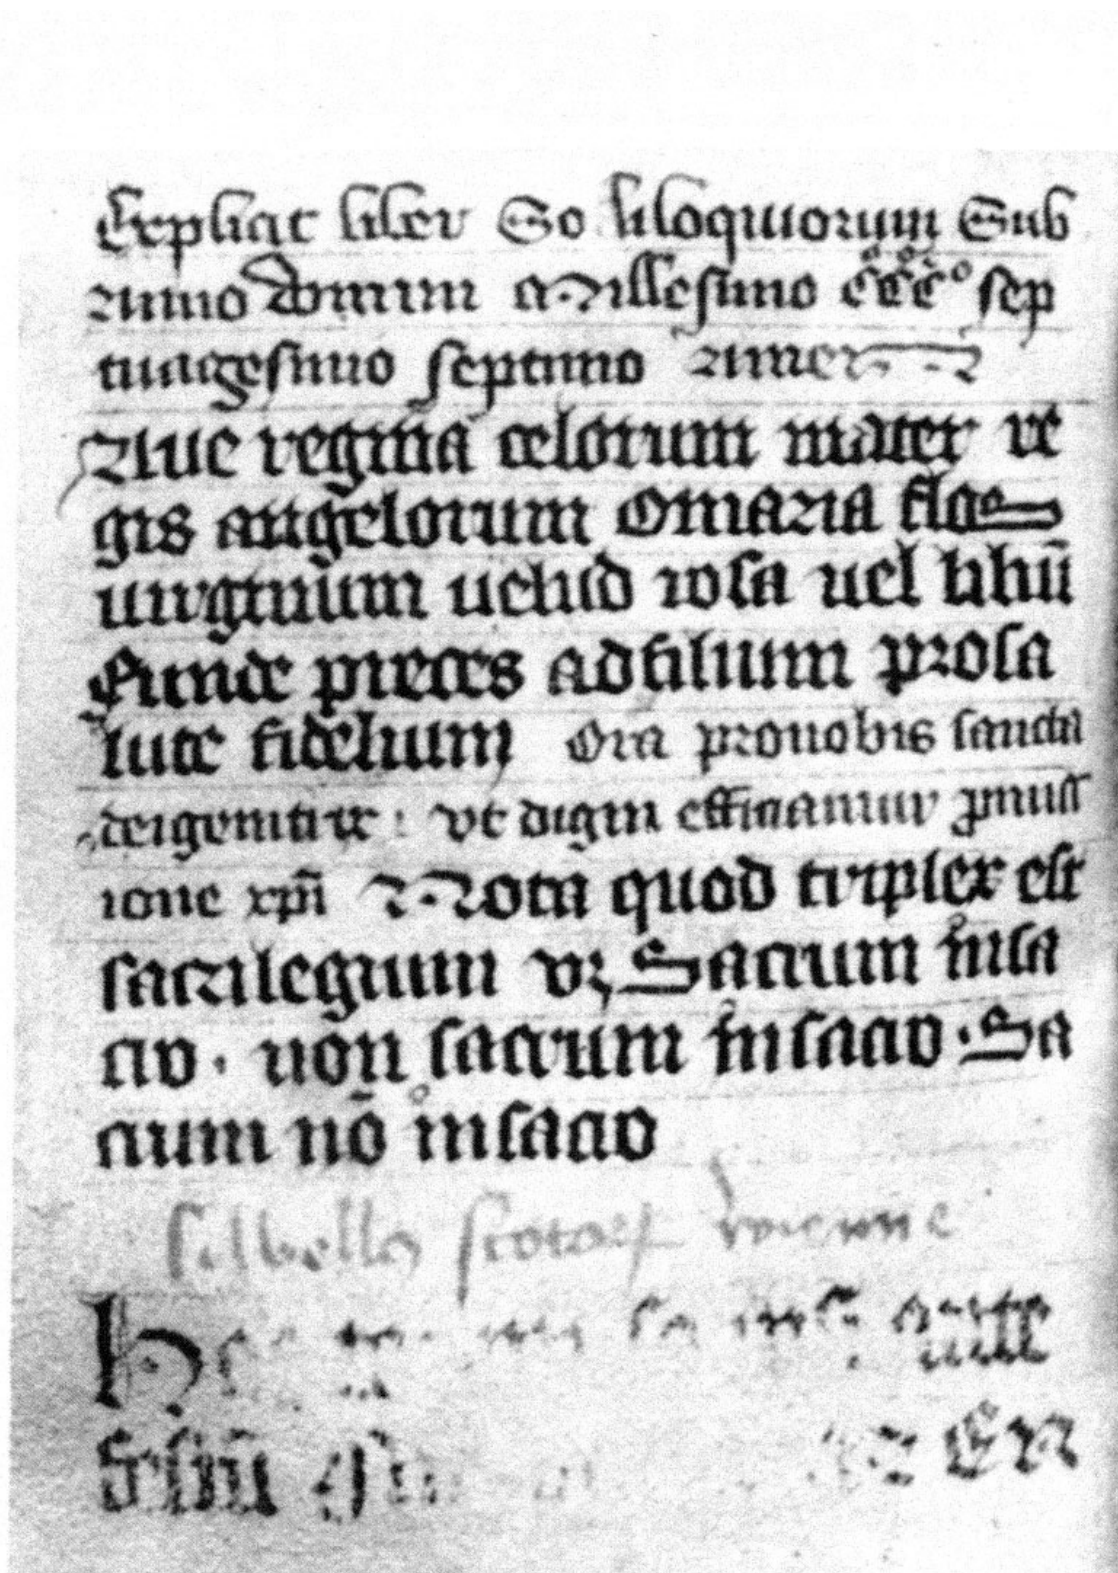 Explicit liber So liloquiorum Sub
Anno domini Millesimo ccc° sep
tuagesimo septimo Amen
Aue regina celorum mater re
gis angelorum O maria flos
uirginum uelud rosa uel liliū
Funde preces ad filium pro sa
lute fidelium Ora pro nobis sancta
dei genitrix : vt digni efficiamur ꝓmiss
ione xp̄i Nota quod triplex est
sacrilegium vꝫ Sacrum in sa
cro · non sacrum in sacro · Sa
crum nō in sacro
scotorum vienne